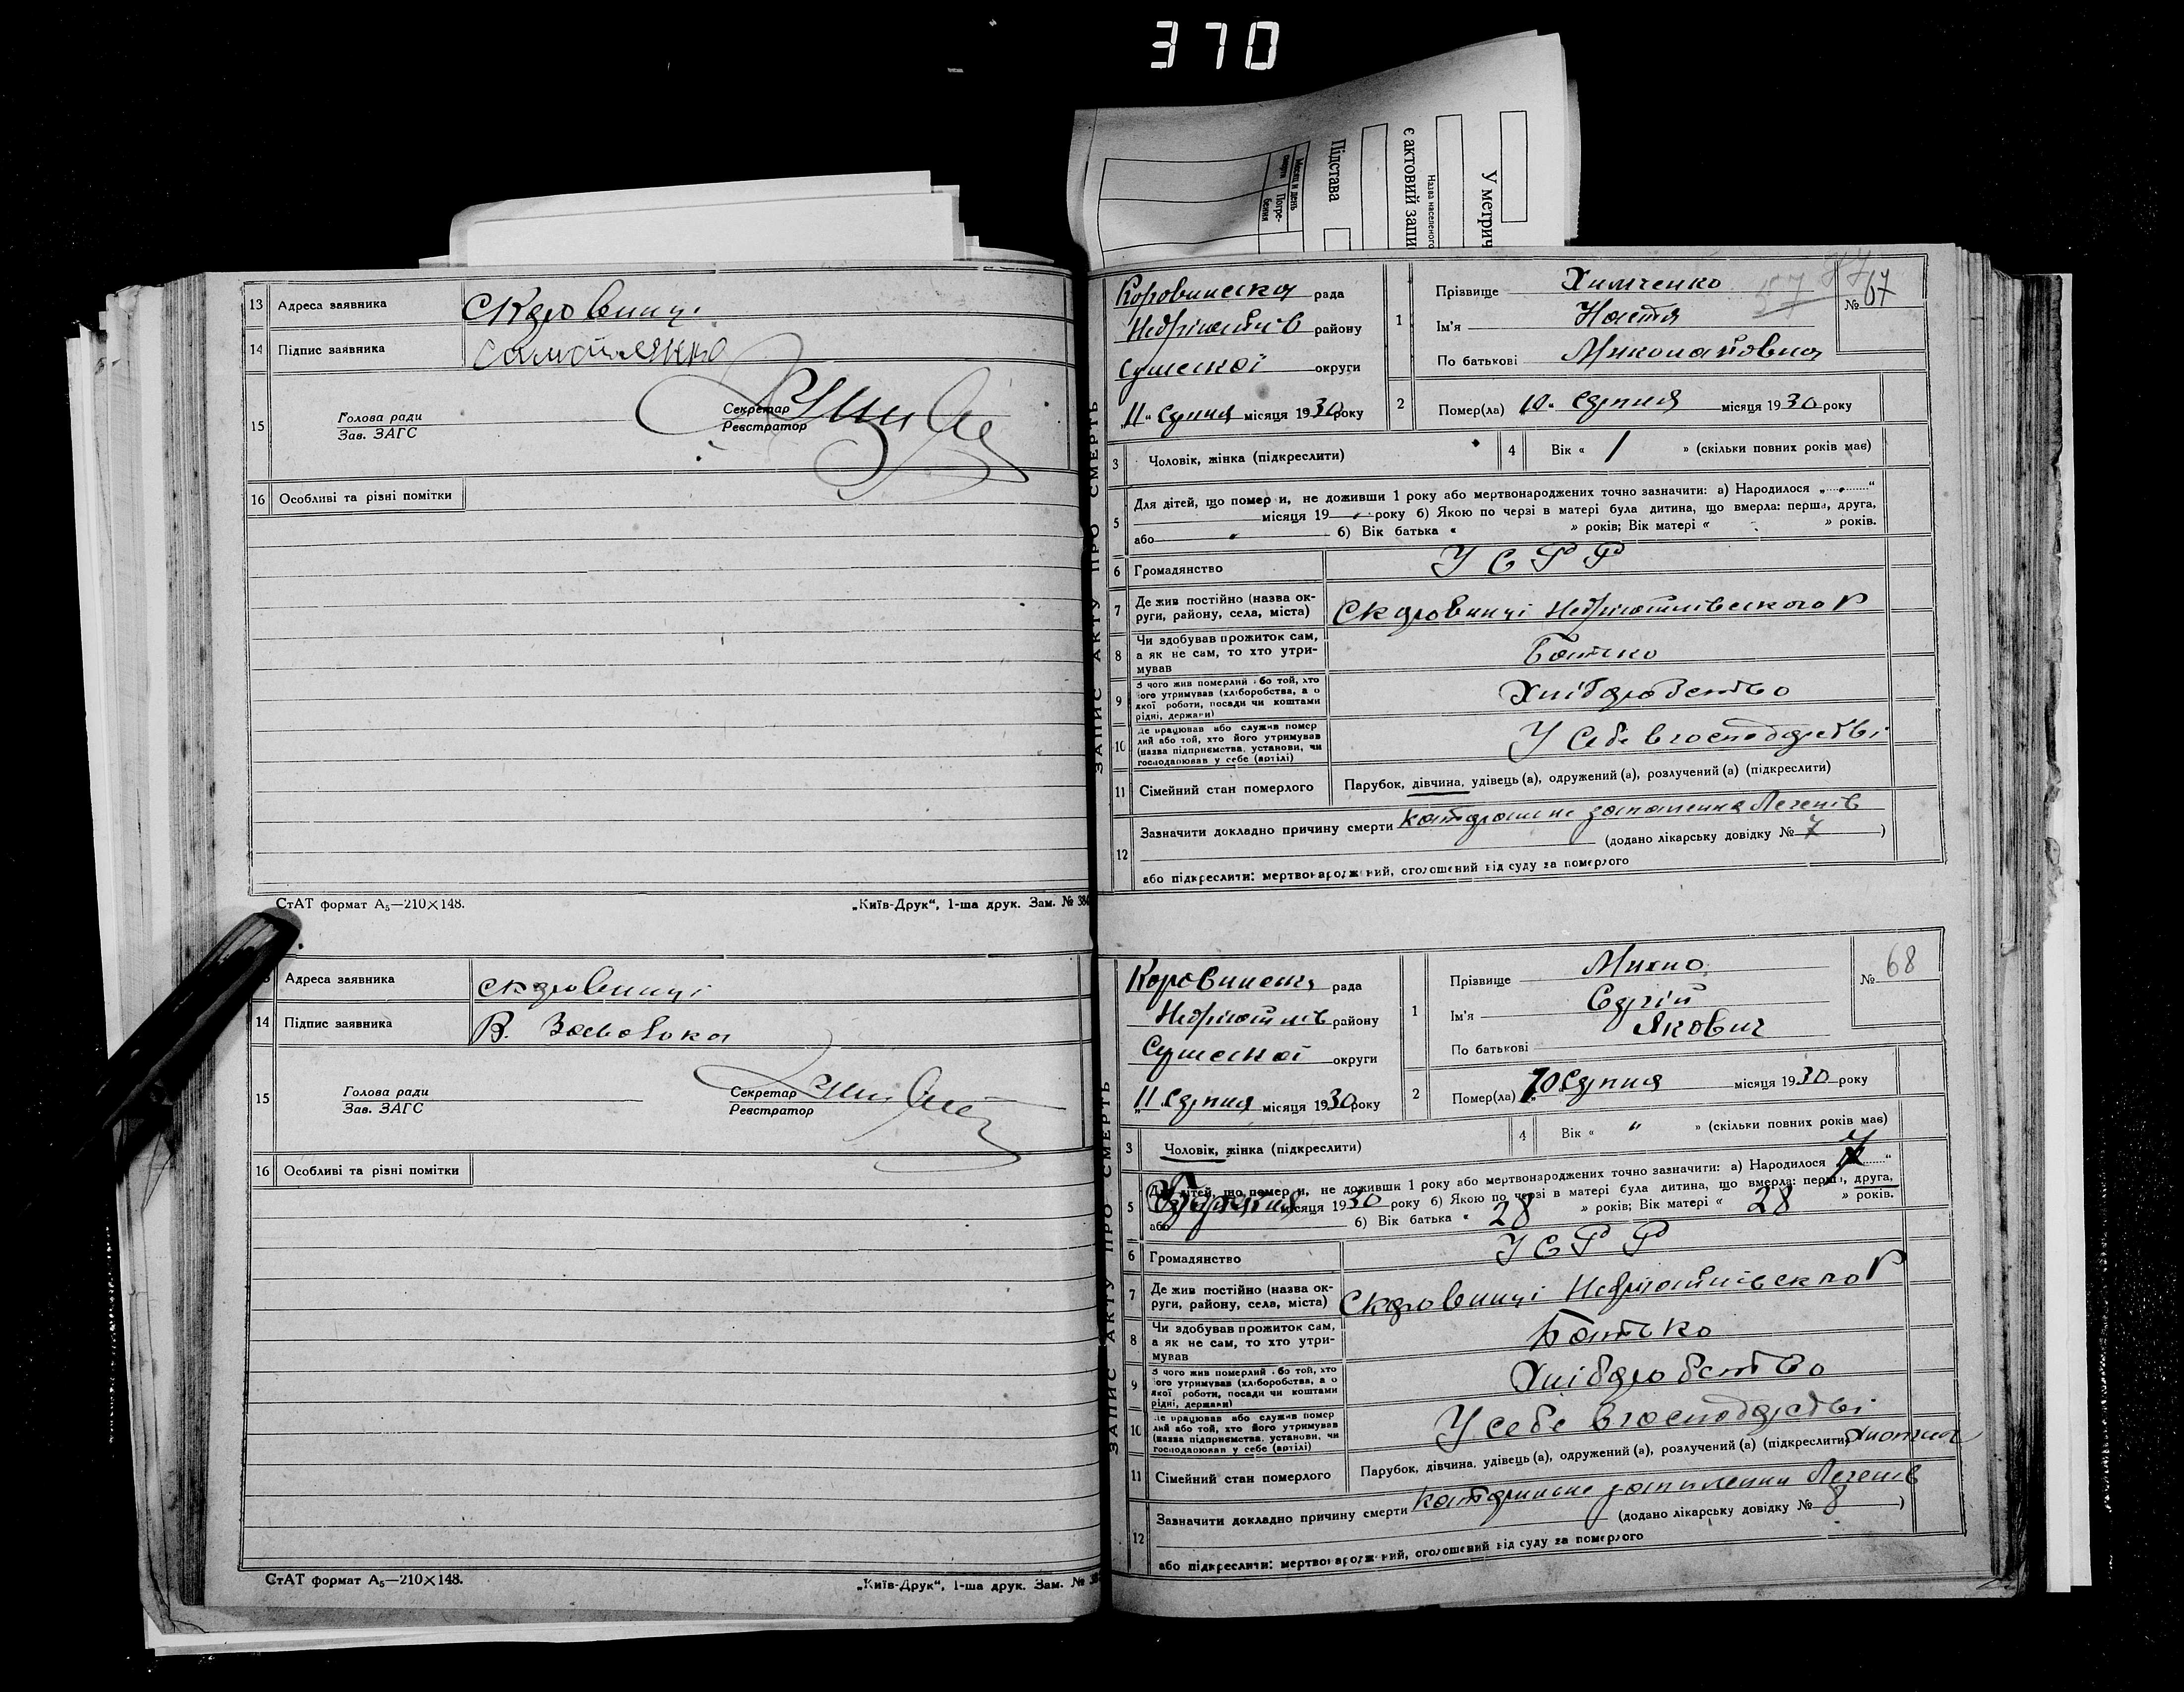 370
У метрич
Назва населеного
є актовий запи
Підстава
Месяц и день
смерти
Погре-
бения
13 Адреса заявника С Коровинці
14 Підпис заявника
15 Голова ради
Зав. ЗАГС
Секретар
Реєстратор
16 Особливі та різні помітки
СтАТ формат А₅—210×148. „Київ-Друк“, 1-ша друк. Зам. № 380
Адреса заявника С Коровинці
14 Підпис заявника В.
15 Голова ради
Зав. ЗАГС
Секретар
Реєстратор
16 Особливі та різні помітки
СтАТ формат А₅—210×148. „Київ-Друк“, 1-ша друк. Зам. №
ЗАПИС АКТУ ПРО СМЕРТЬ
Коровинська рада
Недригайлів району
Сумської округи
„11“ Серпня місяця 1930 року
1 Прізвище Химченко
Ім’я Настя
По батькові Миколаївна
№ 67
2 Помер(ла) 10 „ Серпня місяця 1930 року
3 Чоловік, жінка (підкреслити)
4 Вік « 1 » (скільки повних років має)
5 Для дітей, що померли, не доживши 1 року або мертвонароджених точно зазначити: а) Народилося „ “
місяця 19 року б) Якою по черзі в матері була дитина, що вмерла: перша, друга,
або б) Вік батька « » років; Вік матері « » років.
6 Громадянство УСРР
7 Де жив постійно (назва ок-
руги, району, села, міста) С Коровинці Недригайлівського Р
8 Чи здобував прожиток сам,
а як не сам, то хто утри-
мував Батько
9 З чого жив померлий або той, хто
його утримував (хліборобства, а о
якої роботи, посади чи коштами
рідні, держави) Хліборобство
10 Де працював або служив помер
лий або той, хто його утримував
(назва підприємства, установи, чи
господарював у себе (артілі) У Себе в господарстві
11 Сімейний стан померлого Парубок, дівчина, удівець (а), одружений (а), розлучений (а) (підкреслити)
12 Зазначити докладно причину смерти Катаральне запалення Легенів
(додано лікарську довідку № 7 )
або підкреслити: мертвонароджений, оголошений від суду за померлого
ЗАПИС АКТУ ПРО СМЕРТЬ
Коровинська рада
Недригайлів району
Сумської округи
„11 Серпня місяця 1930 року
1 Прізвище Михно
Ім’я Сергій
По батькові Якович
№ 68
2 Помер(ла) 10 Серпня місяця 1930 року
3 Чоловік, жінка (підкреслити)
4 Вік « " » (скільки повних років має)
5 Для дітей, що померли, не доживши 1 року або мертвонароджених точно зазначити: а) Народилося 7 “
місяця 1930 року б) Якою по черзі в матері була дитина, що вмерла: перша, друга,
або б) Вік батька « 28 » років; Вік матері « 28 » років.
6 Громадянство УСРР
7 Де жив постійно (назва ок-
руги, району, села, міста) С Коровинці Недригайлівськго Р
8 Чи здобував прожиток сам,
а як не сам, то хто утри-
мував Батько
9 З чого жив померлий або той, хто
його утримував (хліборобства, а о
якої роботи, посади чи коштами
рідні, держави) Хліборобство
10 Де працював або служив помер
лий або той, хто його утримував
(назва підприємства, установи, чи
господарював у себе (артілі) У себе в господарстві
11 Сімейний стан померлого Парубок, дівчина, удівець (а), одружений (а), розлучений (а) (підкреслити)
12 Зазначити докладно причину смерти Катаральне запалення Легенів
(додано лікарську довідку № 8 )
або підкреслити: мертвонароджений, оголошений від суду за померлого